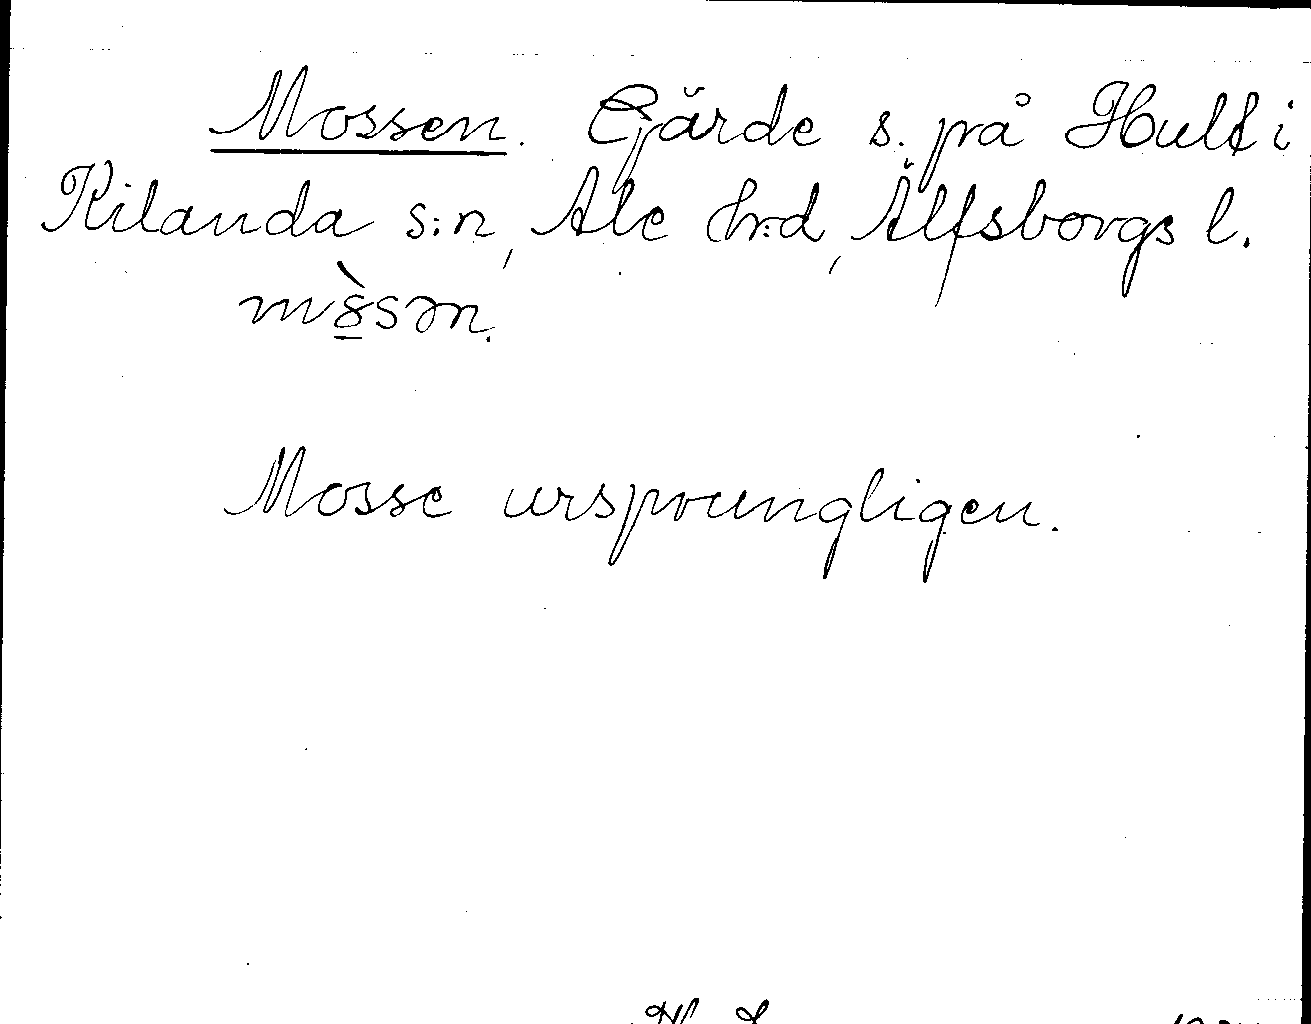 Mossen. Gärde s. på Hult i
Kilanda s:n, Ale h:d, Älfsborgs l.
Mosse ursprungligen.